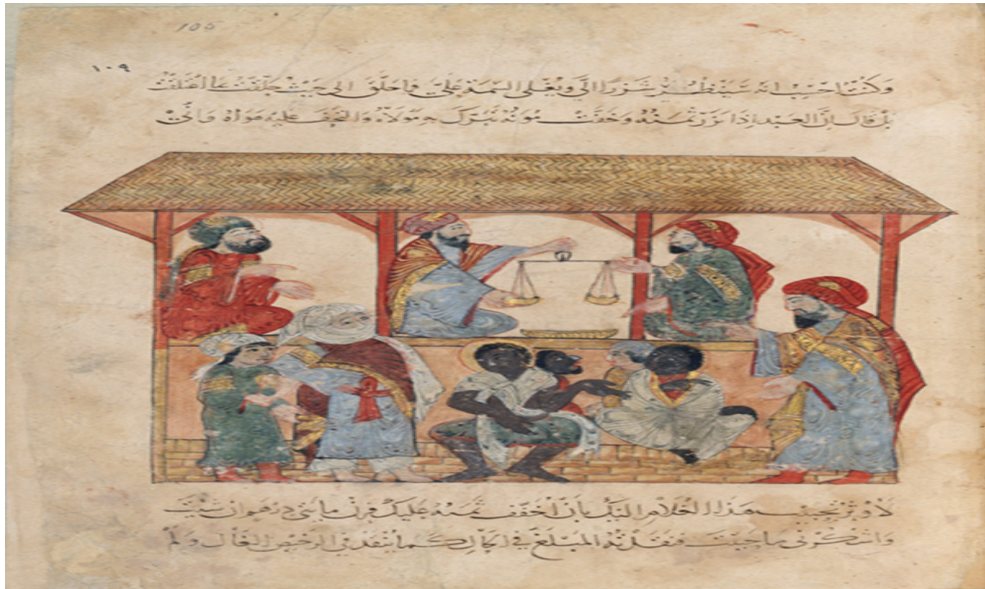 ١٠٩
وكنت احسب انه سينظر شزرا الي ويغلي السيمة علي فما حلق الى حيث حلقت
بل قال ان العبد اذا نزر ثمنه وخفت مونه تبرك به مولاه والتحف عليه هواه واني
لاوثر تحبيب هذا الغلام اليك بان اخفف ثمنه عليك فزن مايتي درهم ان شيت
واشكر لي ما حييت فنقدته المبلغ في الحال كما ينقد في الرخيص ولم